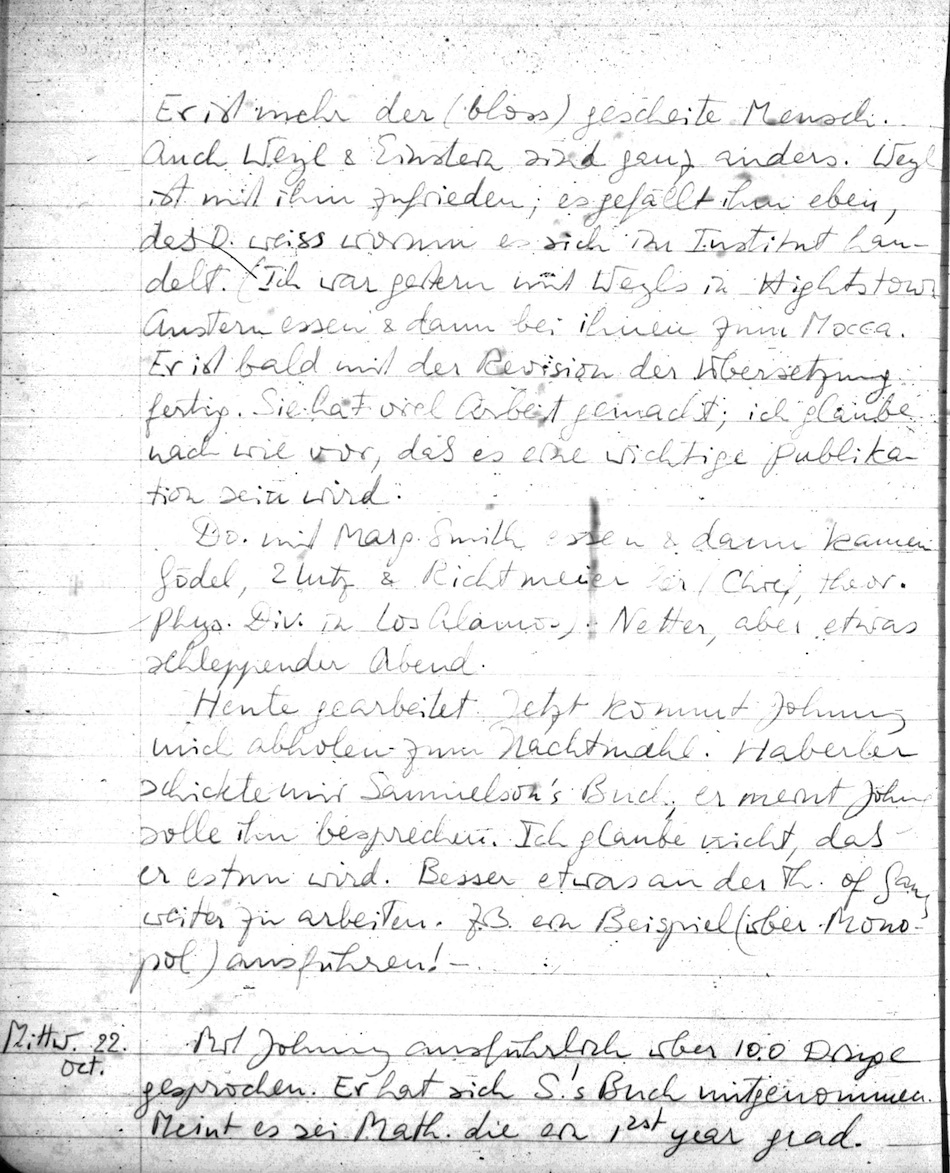 Er ist mehr der (bloss) gescheite Mensch.
Auch Weyl & Einstein sind ganz anders. Weyl
ist mit ihm zufrieden; es gefällt ihm eben,
das O. weiss worum es sich im Institut han-
delt. (Ich war gestern mit Weyls in Hightstown
Austern essen & dann bei ihnen zum Mocca.
Er ist bald mit der Revision der Übersetzung
fertig. Sie hat viel Arbeit gemacht; ich glaube
nach wie vor, das es eine wichtige Publika-
tion sein wird.
Do. mit Marg. Smith essen & dann kamen
Gödel, & Richtmeier (Chief, theor.
Phys. Div. in Los Alamos). Netter, aber etwas
schleppender Abend.
Heute gearbeitet. Jetzt kommt Johnny
mich abholen zum Nachtmahl. Haberler
schickte mir Samuelson's Buch; er meint Johnny
solle ihn besprechen. Ich glaube nicht, das
er es tun wird. Besser etwas an der Th. of Games
weiter zu arbeiten. z.B. ein Beispiel (über Mono-
pol) ausführen! –
Mittw. 22.
Oct.
Mit Johnny ausführlich über 100 Dinge
gesprochen. Er hat sich S.'s Buch mitgenommen.
Meint es sei Math. die ein 1st year grad.